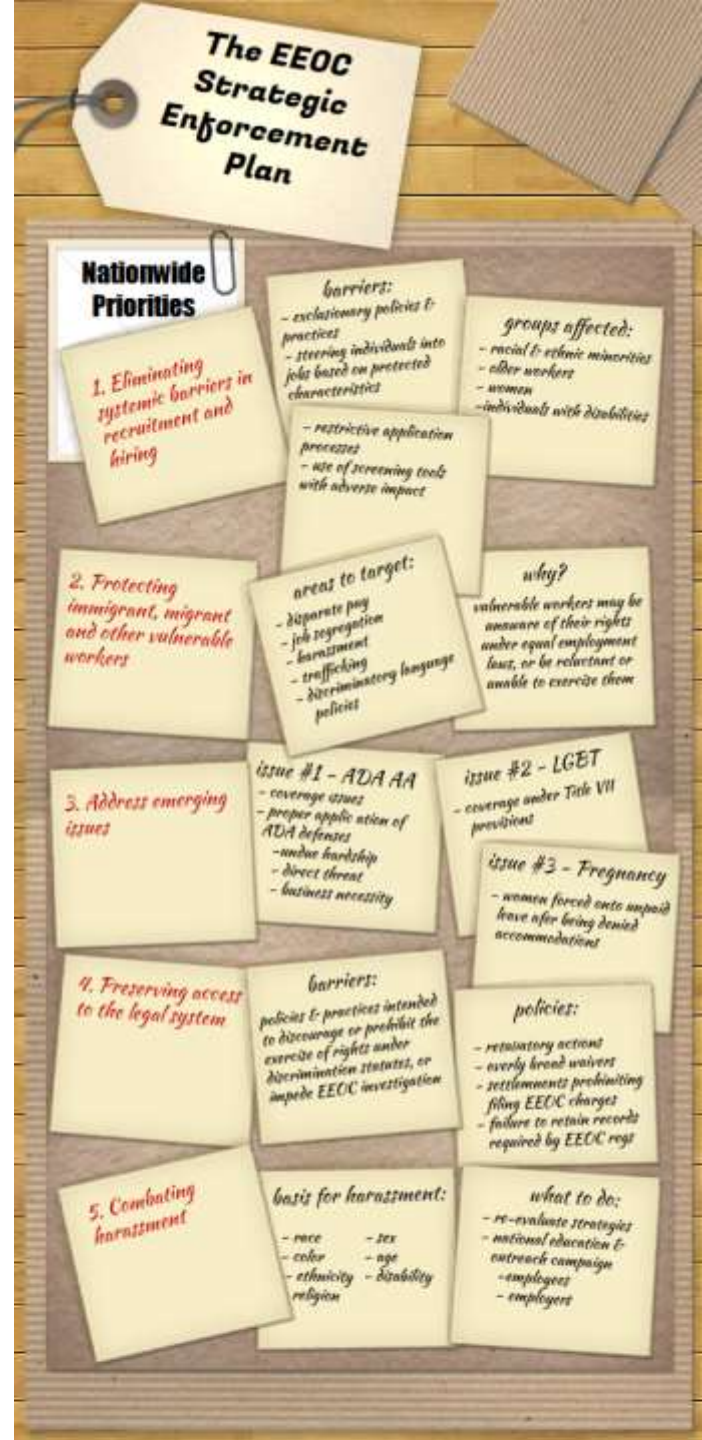 The EEOC
Strategic
Enforcement
Plan
Nationwide
Priorities
1. Eliminating
systemic barriers in
recruitment and
hiring
barriers:
- exclusionary policies &
practices
- steering individuals into
jobs based on protected
characteristics
- restrictive application
processes
- use of screening tools
with adverse impact
groups affected:
- racial & ethnic minorities
- older workers
- women
-individuals with disabilities
2. Protecting
immigrant, migrant
and other vulnerable
workers
areas to target:
- disparate pay
- job segregation
- harassment
- trafficking
- discriminatory language
policies
why?
vulnerable workers may be
unaware of their rights
under equal employment
laws, or be reluctant or
unable to exercise them
3. Address emerging
issues
issue #1 - ADA AA
- coverage issues
- proper applic ation of
ADA defenses
-undue hardship
- direct threat
- business necessity
issue #2 - LGBT
- coverage under Title VII
provisions
issue #3 - Pregnancy
- women forced onto unpaid
leave afer being denied
accommodations
4. Preserving access
to the legal system
barriers:
policies & practices intended
to discourage or prohibit the
exercise of rights under
discrimination statutes, or
impede EEOC investigation
policies:
- retaliatory actions
- overly broad waivers
- settlemnents prohiniting
filing EEOC charges
- failure to retain records
required by EEOC regs
5. Combating
harassment
basis for harassment:
- race - sex
- color - age
- ethnicity - disability
religion
what to do:
- re-evaluate strategies
- national education &
outreach campaign
-employees
- employers